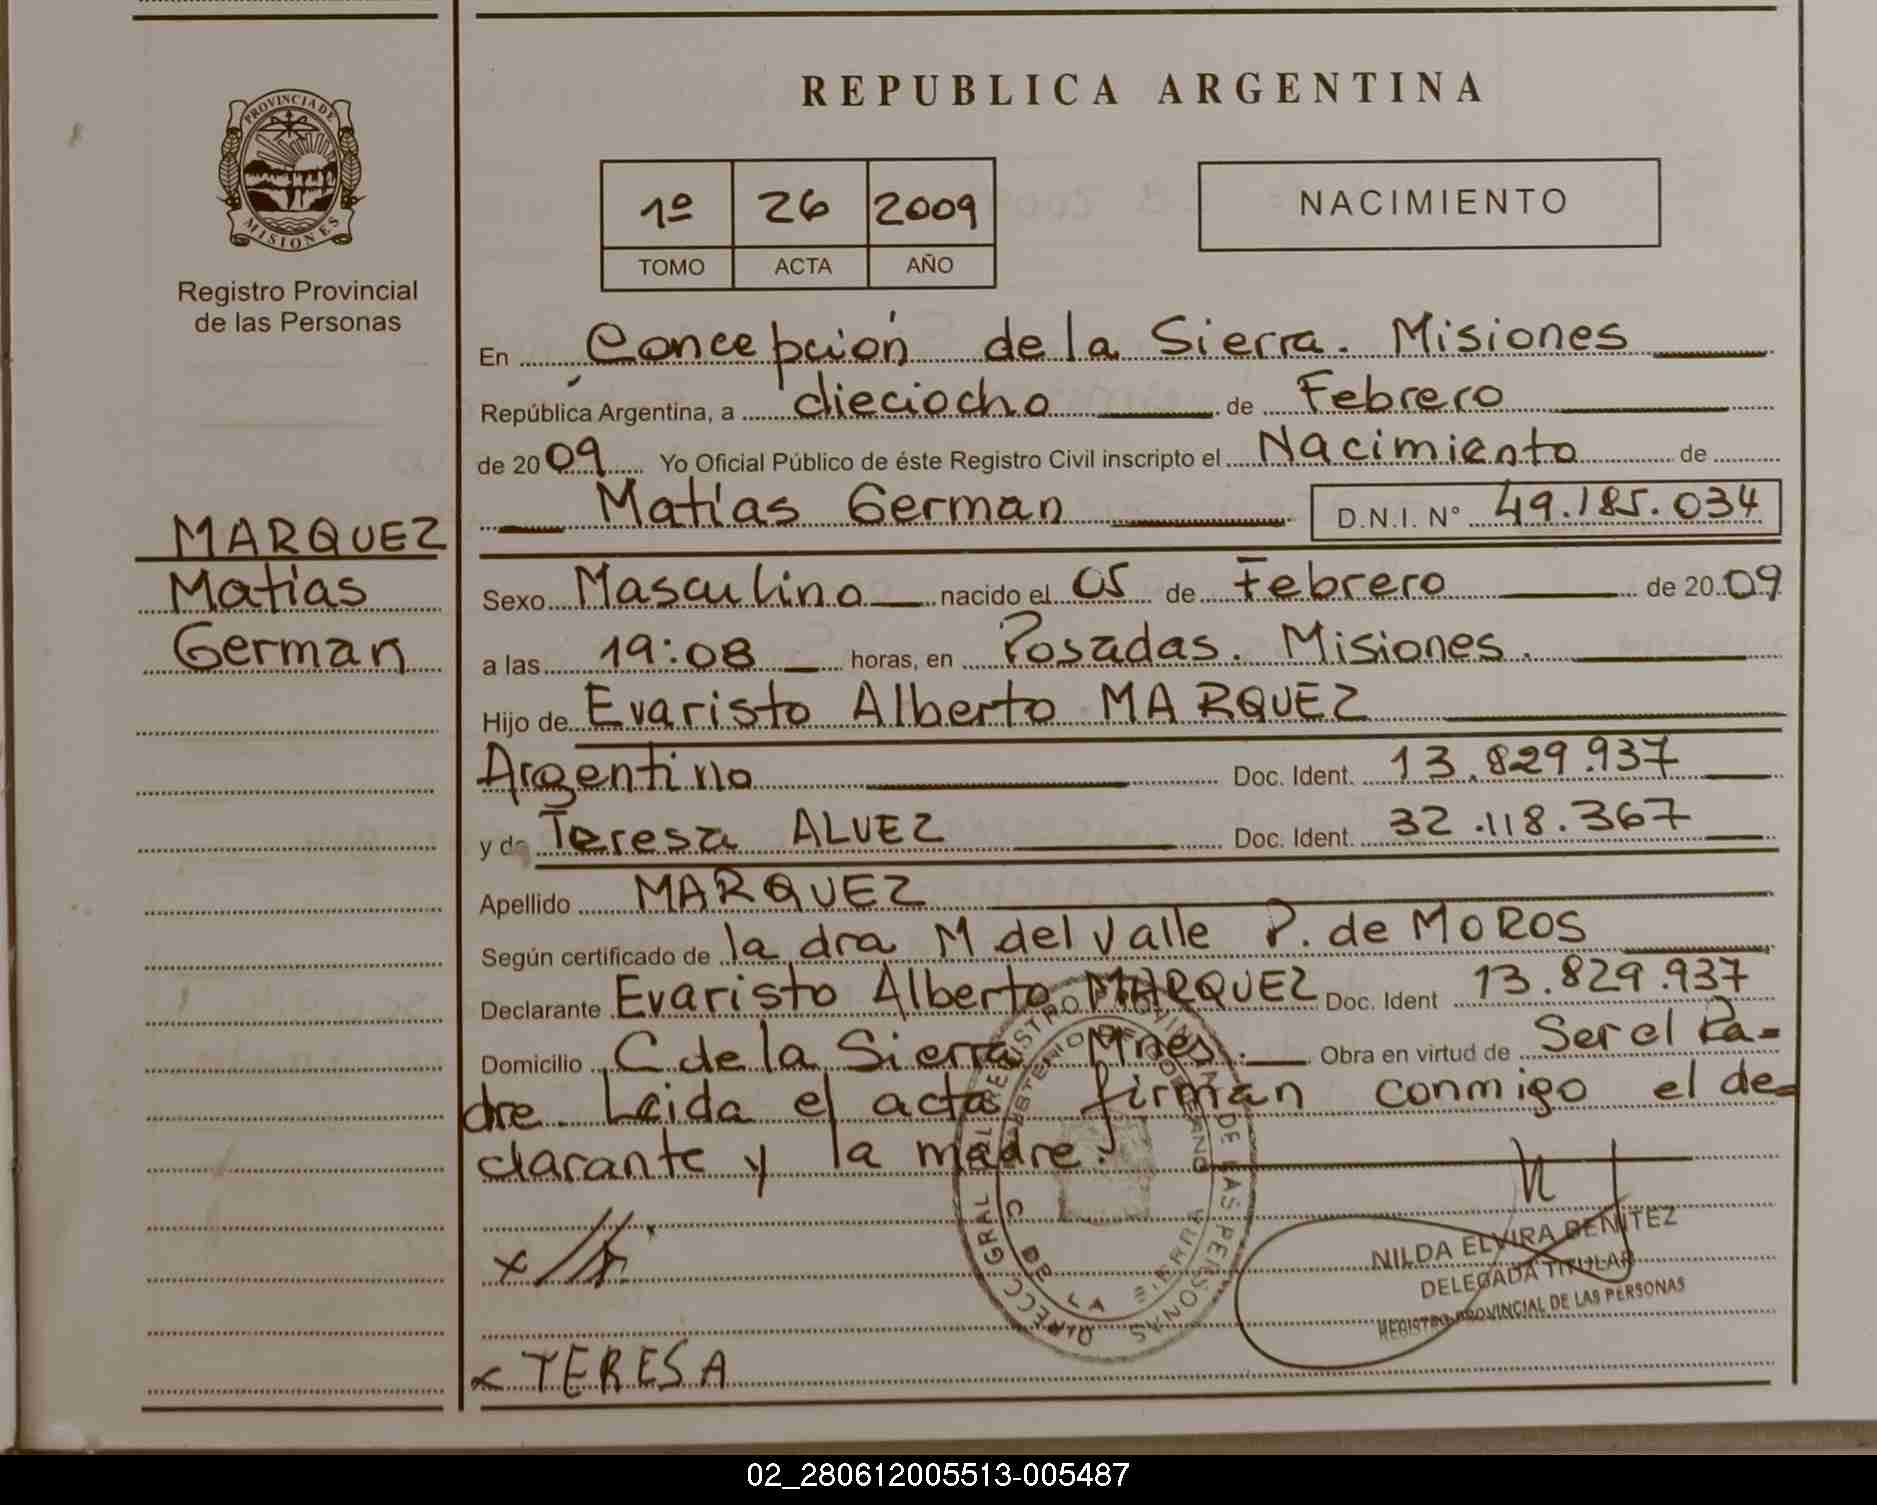 PROVINCIA DE
MISIONES
Registro Provincial
de las Personas
MARQUEZ
Matías
German
REPUBLICA ARGENTINA
1º 26 2009
TOMO ACTA AÑO
NACIMIENTO
En Concepción de la Sierra. Misiones
República Argentina, a dieciocho de Febrero
de 2009 Yo Oficial Público de éste Registro Civil inscripto el Nacimiento de
Matías German D.N.I. N° 49.185.034
Sexo Masculino nacido el 05 de Febrero de 2009
a las 19:08 horas, en Posadas. Misiones.
Hijo de Evaristo Alberto MARQUEZ
Argentino Doc. Ident. 13.829.937
y de Teresa ALVEZ Doc. Ident. 32.118.367
Apellido MARQUEZ
Según certificado de la dra M del Valle P. de MOROS
Declarante Evaristo Alberto MARQUEZ Doc. Ident 13.829.937
Domicilio C de la Sierra Mnes. Obra en virtud de Ser el Pa-
dre. Leida el acta firman conmigo el de-
clarante y la madre.
DIRECC GRAL REGISTRO PROVINCIAL DE LAS PERSONAS
C DE LA SIERRA
NILDA ELVIRA BENITEZ
DELEGADA TITULAR
REGISTRO PROVINCIAL DE LAS PERSONAS
x TERESA
02_280612005513-005487